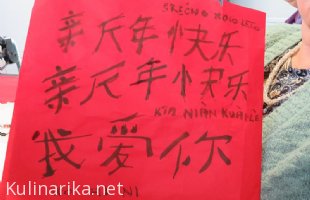 SREČNO NOVO LETO
亲斤年快乐
亲斤年快乐
XIN NIÀN KUÀI LE
我爱你
NI
Kulinarika.net